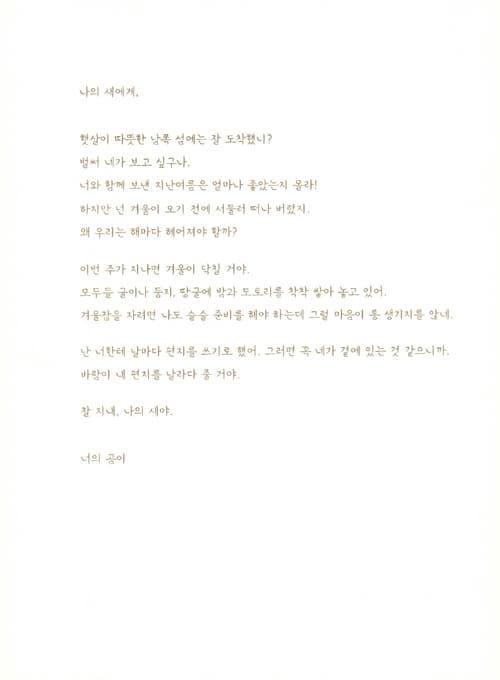 나의 새에게,
햇살이 따뜻한 남쪽 섬에는 잘 도착했니?
벌써 네가 보고 싶구나.
너와 함께 보낸 지난여름은 얼마나 좋았는지 몰라!
하지만 넌 겨울이 오기 전에 서둘러 떠나 버렸지.
왜 우리는 해마다 헤어져야 할까?
이번 주가 지나면 겨울이 닥칠 거야.
모두들 굴이나 둥지, 땅굴에 밤과 도토리를 착착 쌓아 놓고 있어.
겨울잠을 자려면 나도 슬슬 준비를 해야 하는데 그럴 마음이 통 생기지를 않네.
난 너한테 날마다 편지를 쓰기로 했어. 그러면 꼭 네가 곁에 있는 것 같으니까.
바람이 네 편지를 날라다 줄 거야.
잘 지내, 나의 새야.
너의 곰이